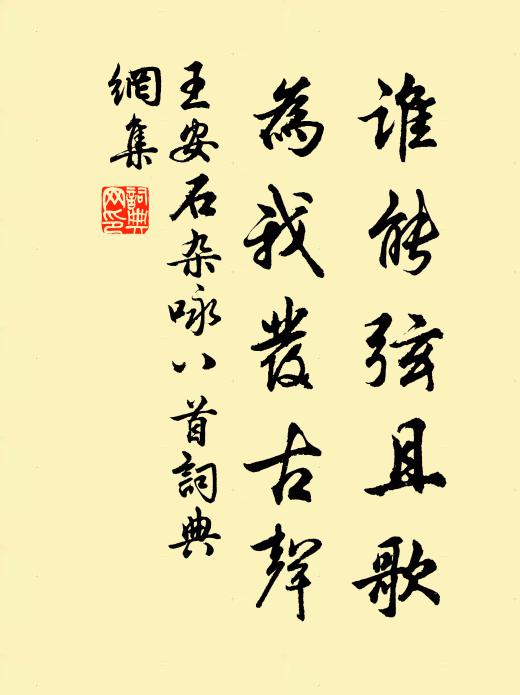 誰能弦且歌
為我發古聲
王安石杂咏八首詞典
網集
詞典網印